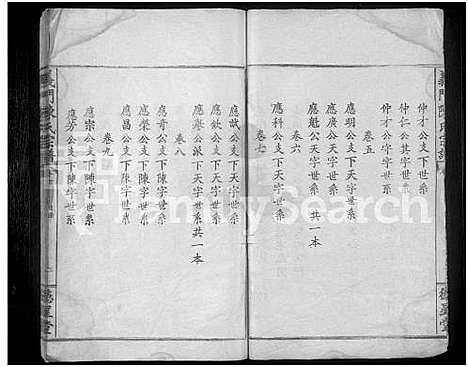 義門陳氏宗譜
仲才公支下世系
仲仁公其下世系
仲才公天字世系
卷五
應明公支下天字世系
應魁公天字世系 共一本
卷六
應科公支下天字世系
卷七
德星堂
應試公支下天字世系
應欽公支下天字世系
應舉公派下天字世系共一本
卷八
應奇公支下陳字世系
應榮公支下陳字世系
應昌公支下陳字世系
卷九
應宗公支下陳字世系
應芳公支下陳字世系
義門陳氏宗譜
德星堂
Family Search